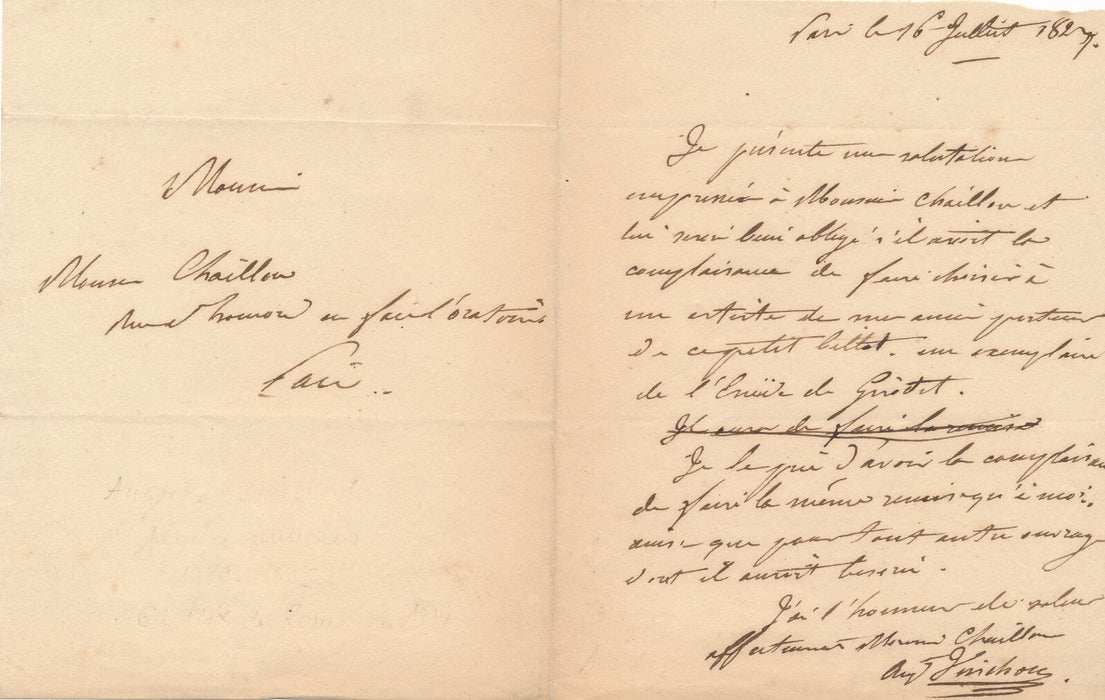 Monsieur
Monsieur Chaillou
rue d' honoré en face l'oratoire
Paris
Paris le 16 Juillet 1827.
Je présente mes salutations
empressées à Monsieur Chaillou et
lui serai bien obligé s'il avoit la
complaisance de faire choisir à
un artiste de mes amis porteur
de ce petit billet. un exemplaire
de l'Enéïde de Girodet.
Il aura de faire la remise
Je le prie d'avoir la complaisance
de faire la même remise qu'à moi.
ainsi que pour tout autre ouvrage
dont il auroit besoin.
J'ai l'honneur de saluer
affectueusement Monsieur Chaillou
Augte Vinchon.
Auguste
1789
Prix de Rome en 1814